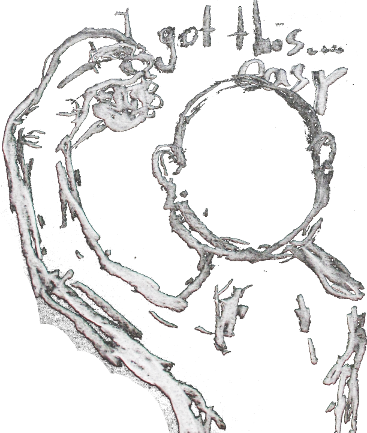 I got this...
easy